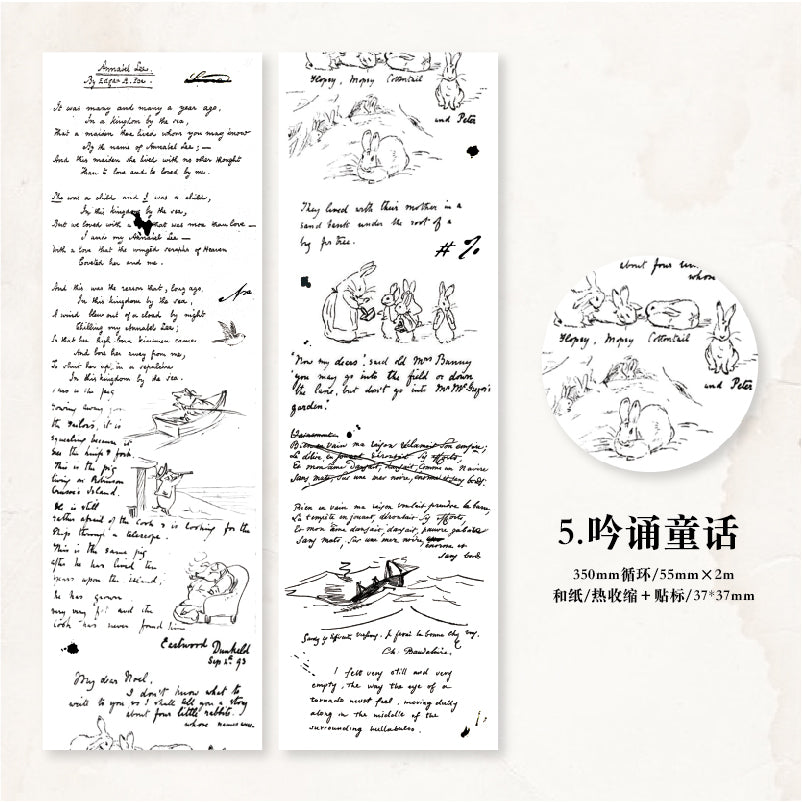 Annabel Lee.
By Edgar A. Poe.
It was many and many a year ago,
In a kingdom by the sea,
That a maiden there lived whom you may know
By the name of Annabel Lee; —
And this maiden she lived with no other thought
Than to love and be loved by me.
She was a child and I was a child,
In this kingdom by the sea,
But we loved with a that was more than love —
I and my Annabel Lee —
With a love that the winged seraphs of Heaven
Coveted her and me.
And this was the reason that, long ago,
In this kingdom by the sea,
A wind blew out of a cloud by night
Chilling my Annabel Lee;
So that her high-born kinsmen came
And bore her away from me,
To shut her up, in a sepulchre
In this kingdom by the sea.
the sailors, it is
squealing because it
See the king & fork.
This is the pig
living on Robinson
Crusoe's Island.
He is still
rather afraid of the Cook & is looking for the
Ships through a telescope.
This is the same pig
after he has lived ten
years upon the island;
he has grown
very very fat and the
Cook has never found him
Eastwood Dunkeld
Sep 4th 93
My dear Noel,
I don't know what to
write to you so I shall tell you a story
about four little rabbits.
whose names were
Flopsy, Mopsy Cottontail
and Peter
They lived with their mother in a
sand bank under the root of a
big fir tree.
# %
'Now my dears' said old Mrs Bunny
'you may go into the field or down
the lane, but don't go into Mr McGregor's
garden.'
Bien en vain ma raison voulait prendre la barre,
La tempête en jouant déroutait Ses efforts,
Et mon âme dansait, dansait, pauvre gabarre
Sans mats, Sur une mer noire, énorme et
sans bords
Ch. Baudelaire.
I felt very still and very
empty, the way the eye of a
tornado must feel, moving dully
along in the middle of the
surrounding hullabaloo.
about four
whose
Flopsy, Mopsy Cottontail
and Peter
5.吟诵童话
350mm循环/55mm×2m
和纸/热收缩+贴标/37*37mm